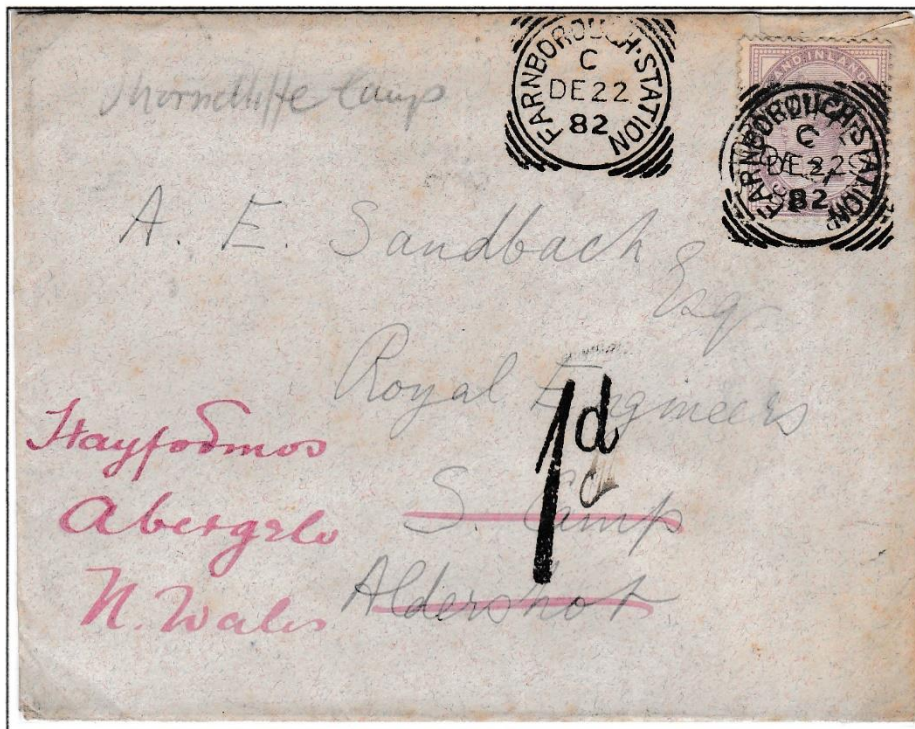 Shorncliffe Camp
FARNBOROUGH·STATION
C
DE 22
82
INLAND
FARNBOROUGH·STATION
C
DE 22
82
A. E. Sandbach
Esq
Royal Engineers
1d
S. Camp
Aldershot
Abergele
N. Wales